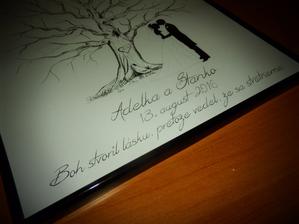 Adelka a Stanko
13. august 2016
Boh stvoril lásku, pretože vedel, že sa stretneme.